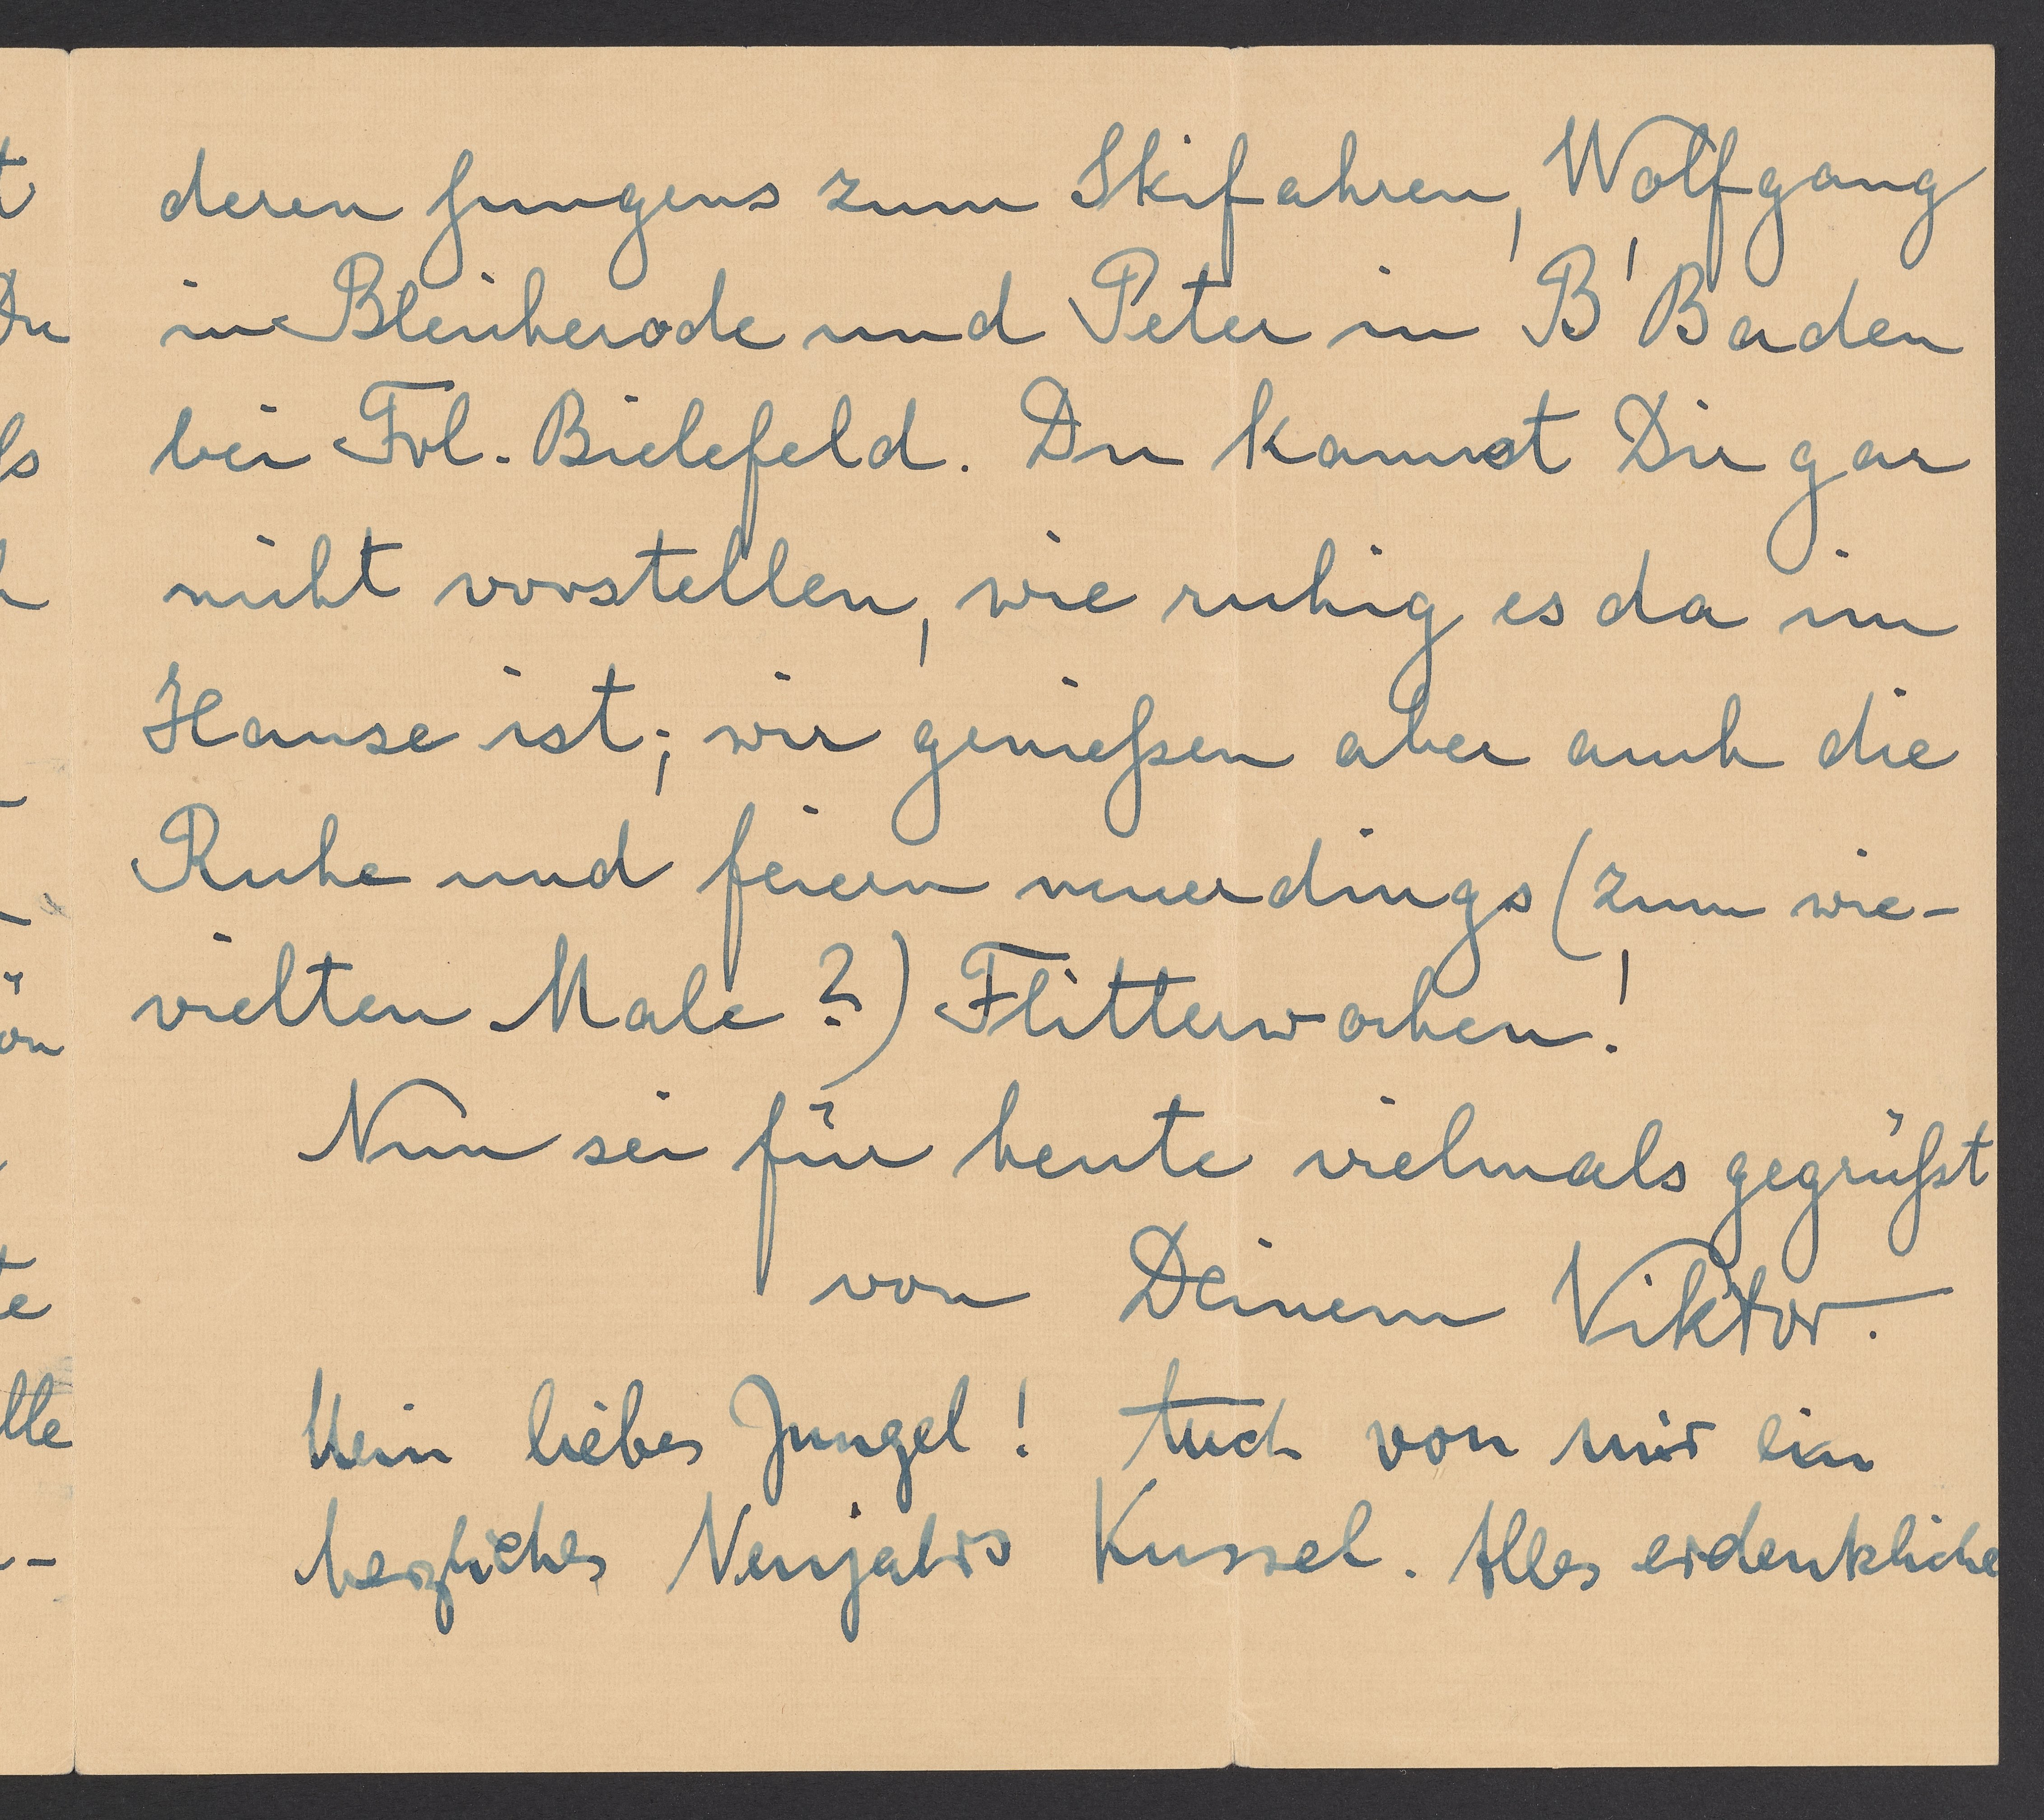 deren Jungens zum Skifahren, Wolfgang
in Bleicherode und Peter in B'Baden
bei Frl. Bielefeld. Du kannst Dir gar
nicht vorstellen, wie ruhig es da im
Hause ist; wir genießen aber auch die
Ruhe und feiern neuerdings (zum wie-
vielten Male?) Flitterwochen!
Nun sei für heute vielmals gegrüßt
von Deinem Viktor.
Mein liebes Jungel! Auch von mir ein
herzliches Neujahrs Kussel. Alles erdenkliche